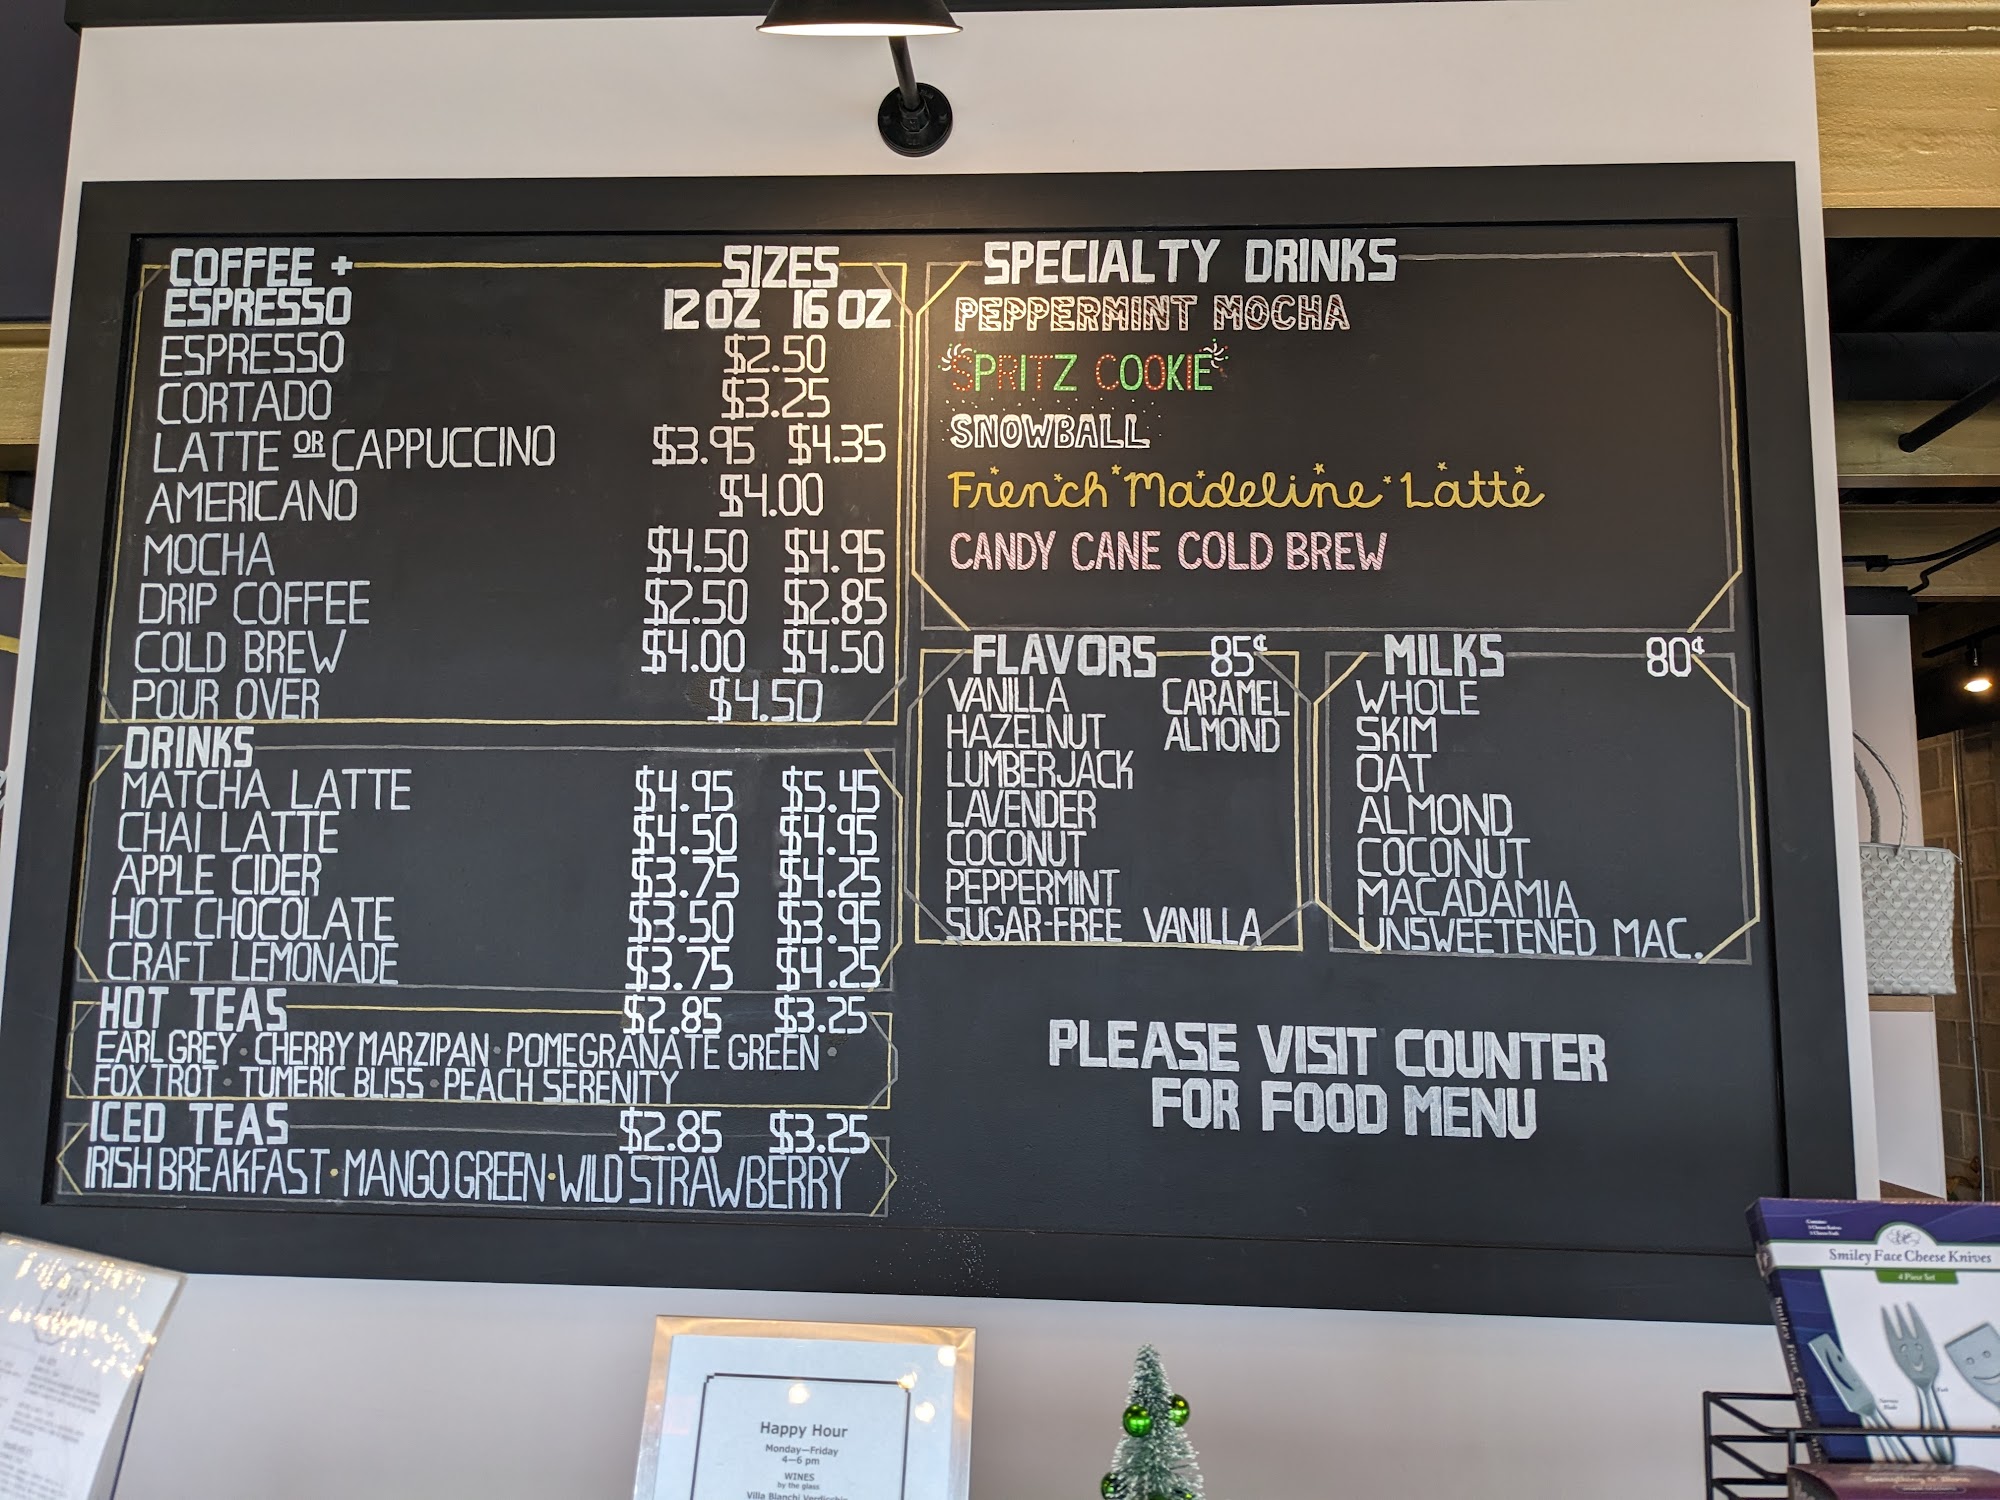 COFFEE + SIZES
ESPRESSO 12 OZ 16 OZ
ESPRESSO $2.50
CORTADO $3.25
LATTE OR CAPPUCCINO $3.95 $4.35
AMERICANO $4.00
MOCHA $4.50 $4.95
DRIP COFFEE $2.50 $2.85
COLD BREW $4.00 $4.50
POUR OVER $4.50
DRINKS
MATCHA LATTE $4.95 $5.45
CHAI LATTE $4.50 $4.95
APPLE CIDER $3.75 $4.25
HOT CHOCOLATE $3.50 $3.95
CRAFT LEMONADE $3.75 $4.25
HOT TEAS $2.85 $3.25
EARL GREY • CHERRY MARZIPAN • POMEGRANATE GREEN •
FOX TROT • TUMERIC BLISS • PEACH SERENITY
ICED TEAS $2.85 $3.25
IRISH BREAKFAST • MANGO GREEN • WILD STRAWBERRY
SPECIALTY DRINKS
PEPPERMINT MOCHA
SPRITZ COOKIE
SNOWBALL
French Madeline Latte
CANDY CANE COLD BREW
FLAVORS 85¢
VANILLA CARAMEL
HAZELNUT ALMOND
LUMBERJACK
LAVENDER
COCONUT
PEPPERMINT
SUGAR-FREE VANILLA
MILKS 80¢
WHOLE
SKIM
OAT
ALMOND
COCONUT
MACADAMIA
UNSWEETENED MAC.
PLEASE VISIT COUNTER
FOR FOOD MENU
Happy Hour
Monday—Friday
4—6 pm
WINES
by the glass
Villa Bianchi
Smiley Face Cheese Knives
4 Piece Set
Smiley Face Cheese